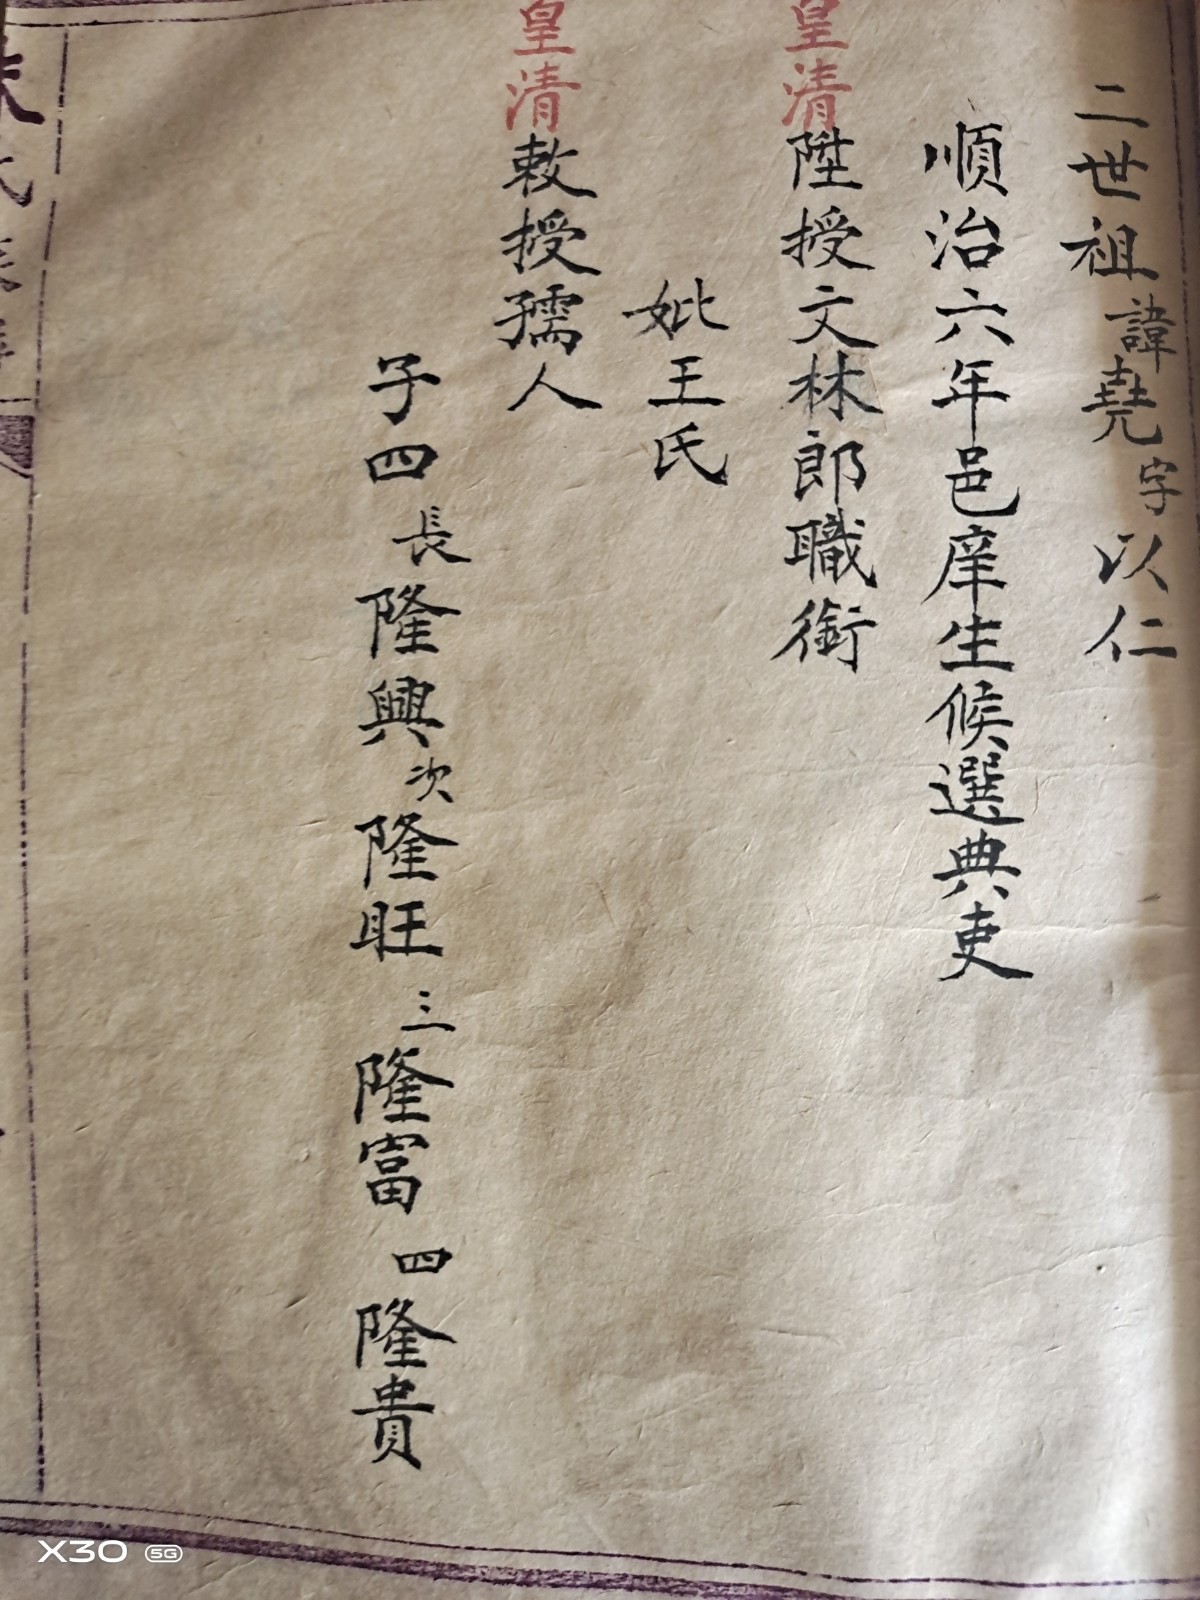 二世祖諱堯字以仁
順治六年邑庠生候選典吏
皇清陞授文林郎職銜
妣王氏
皇清敕授孺人
子四長隆興次隆旺三隆富四隆貴
X30 5G